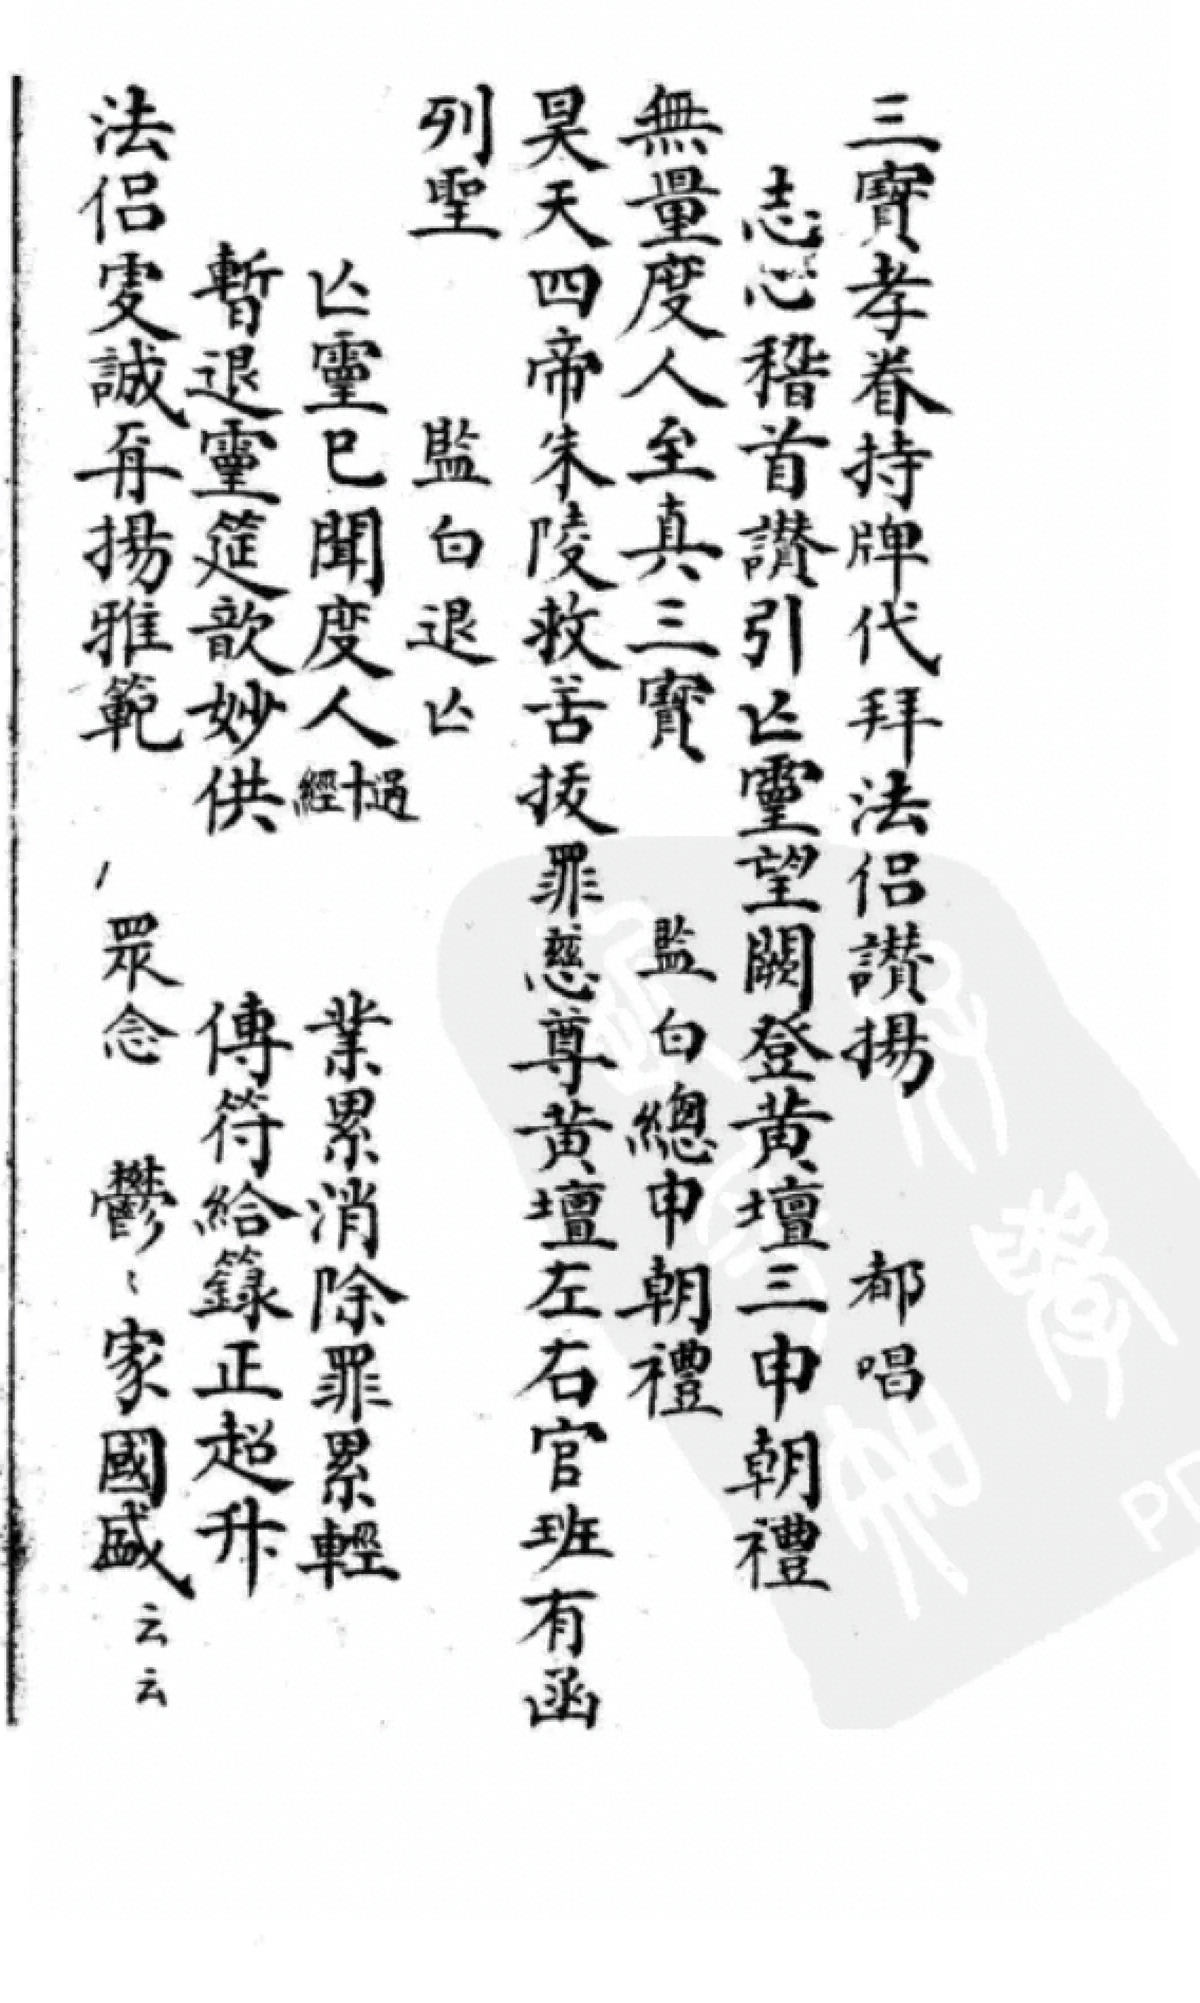 三寶孝眷持牌代拜法侶讚揚　都唱
志心稽首讚引亾靈望闕登黃壇三申朝禮
無量度人至真三寶　監白總申朝禮
昊天四帝朱陵救苦拔罪慈尊黃壇左右官班有函
列聖　監白退亾
亾靈已聞度人經十過　業累消除罪累輕
暫退靈筵歆妙供　傳符給籙正超升
法侶虔誠再揚雅範　眾念　鬱〻家國盛云云